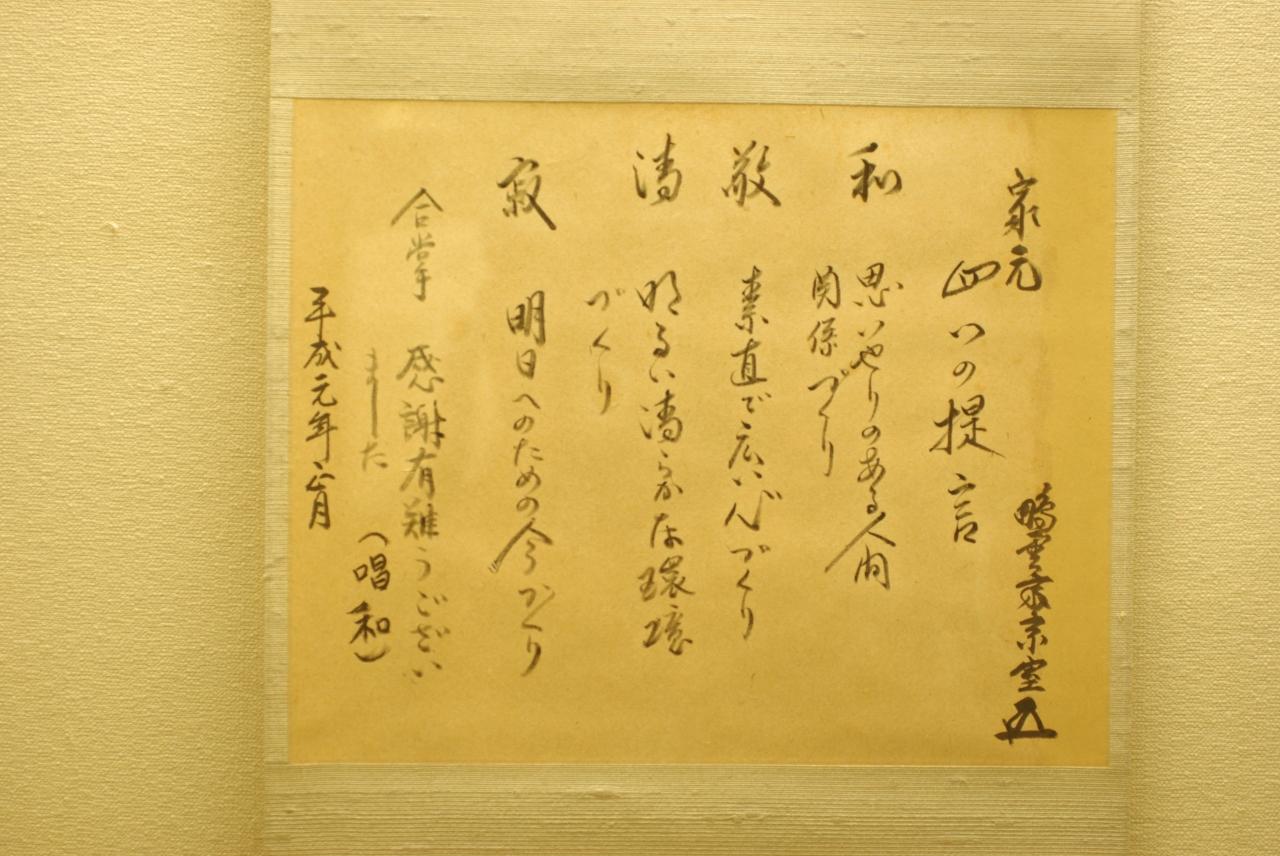 家元
四つの提言
和 思いやりのある人間
関係づくり
敬 素直で広い心づくり
清 明るい清らかな環境
づくり
寂 明日へのための今づくり
合掌 感謝有難うござい
ました
(唱和)
平成元年正月